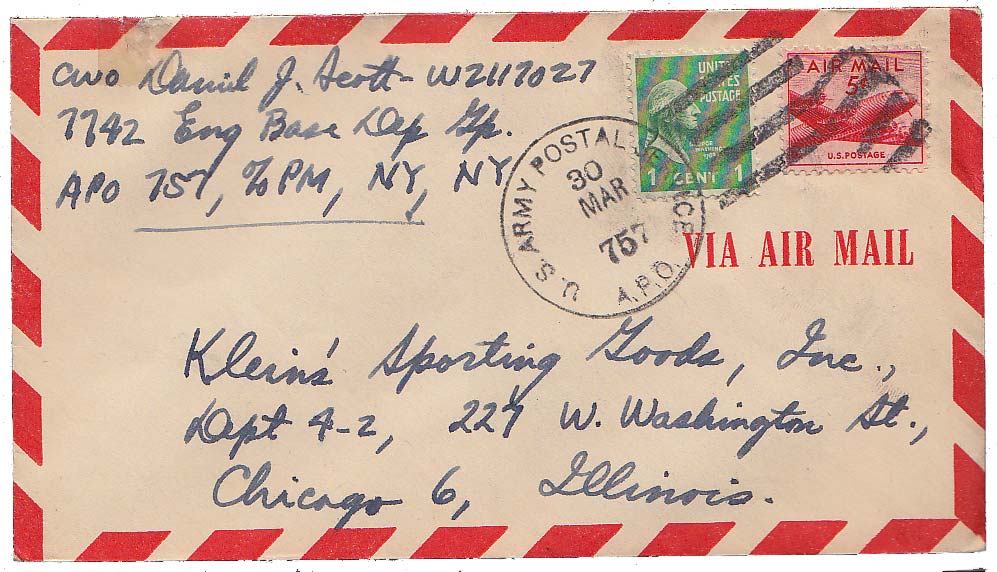 CWO Daniel J. Scott - W2117027
7742 Eng Base Dep Gp.
APO 757, c/o PM, NY, NY
UNITED STATES POSTAGE
1 CENT 1
AIR MAIL
5¢
U.S. POSTAGE
U.S. ARMY POSTAL SERVICE
30
MAR
757
A.P.O.
VIA AIR MAIL
Klein's Sporting Goods, Inc.,
Dept 4-2, 227 W. Washington St.,
Chicago 6, Illinois.